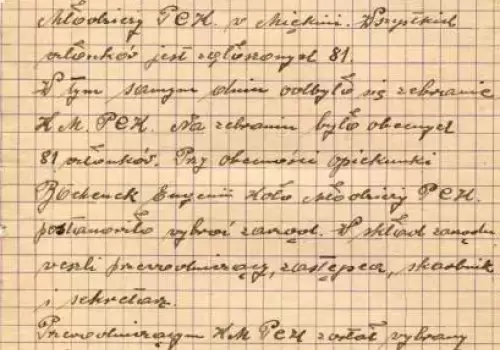 Młodzieży PCK. w Miękini. Wszystkich
członków jest zgłoszonych 81.
W tym samym dniu odbyło się zebranie
K.M. PCK. Na zebraniu było obecnych
81 członków. Przy obecności opiekunki
Eugenii Koło Młodzieży PCK.
postanowiło wybrać zarząd. W skład zarządu
weszli przewodniczący, zastępca, skarbnik
i sekretarz.
Przewodniczącym K.M PCK został wybrany